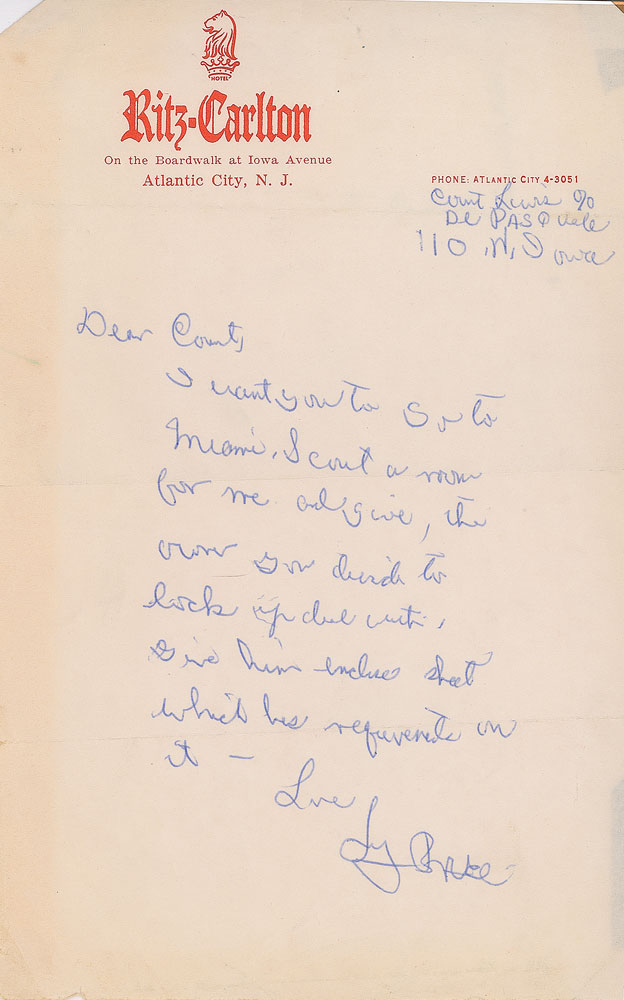 HOTEL
Ritz-Carlton
On the Boardwalk at Iowa Avenue
Atlantic City, N. J.
PHONE: ATLANTIC CITY 4-3051
Count Lewis c/o
De PASQuale
110 N. Iowa
Dear Count,
I want you to go to
Miami, Scout a room
for me and give, the
owner you decide to
lock up deal with,
Give him enclose sheet
which has requirements on
it —
Love